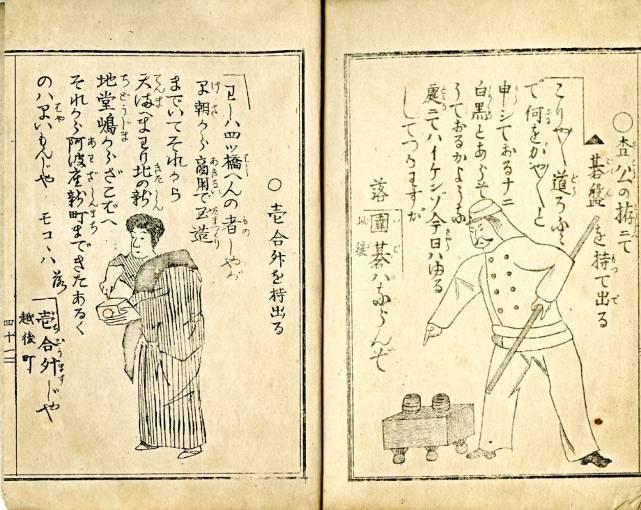 ○査公の拵ニて
碁盤を持て出る
こりや〳〵道ろふ
で何をがや〳〵と
申シておるナニ
白黒とあらそ
うておるか
ニてハイケンゾ今日ハゆる
してつかハすが
落
囲碁ハならんぞ
○壱合舛を持出る
わしハ四ツ橋へんの者じやが
朝から商用で玉造
までいてそれから
天満へまわり北の新
地堂嶋からざこバへ
それから阿波座新町まできたあるく
のハはやいもんじや モコヽハ 落
壱合舛じや
越後町
四十二